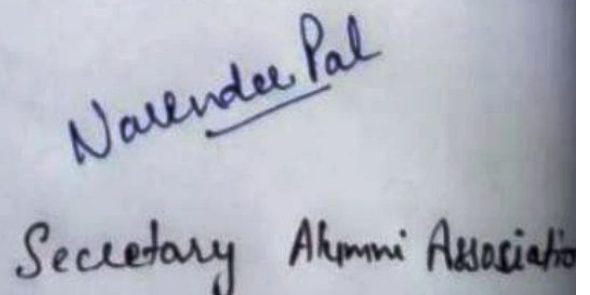 Narender Pal
Secretary Alumni Associatio